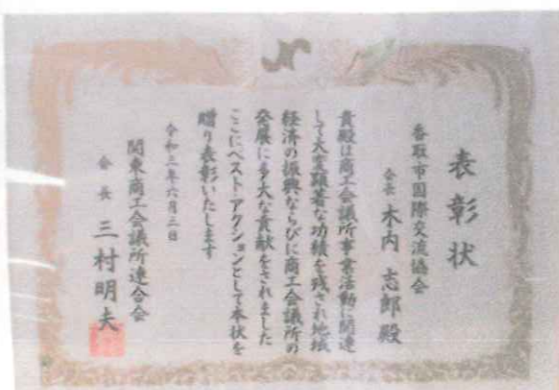 表彰状
香取市国際交流協会
会長 木内志郎殿
貴殿は商工会議所事業活動に関連
して大変顕著な功績を残され地域
経済の振興ならびに商工会議所の
発展に多大な貢献をされました
ここにベスト・アクションとして本状を
贈り表彰いたします
令和三年六月三日
関東商工会議所連合会
会長 三村明夫